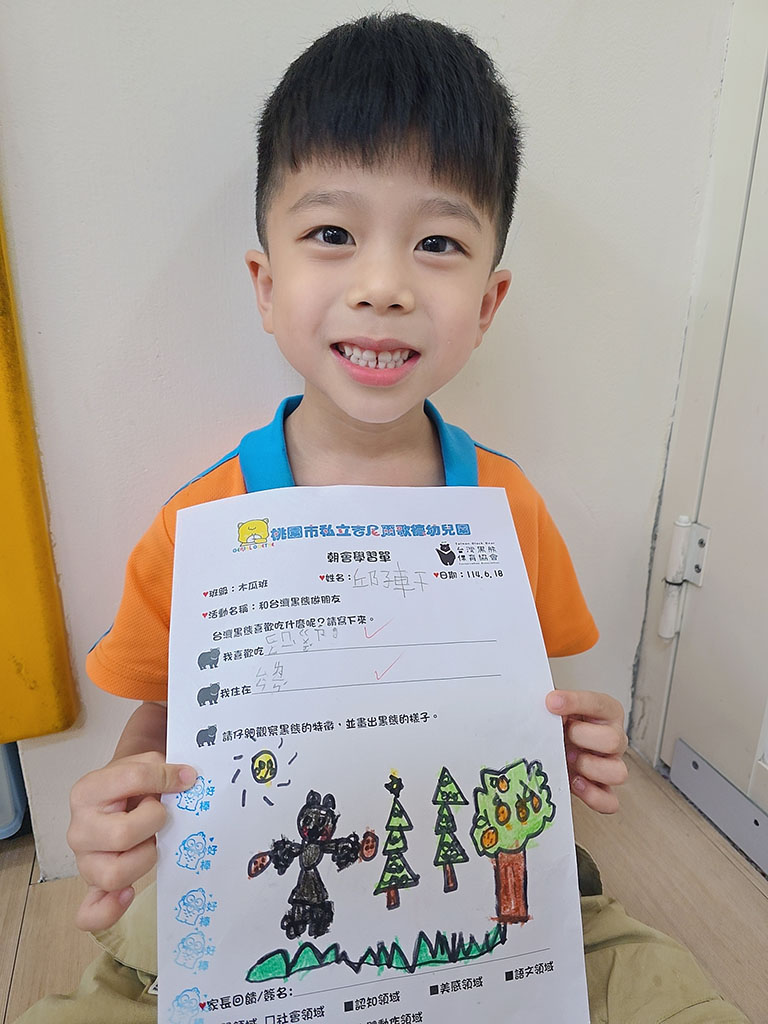 桃園市私立吉尼爾歌德幼兒園
朝會學習單
Taiwan Black Bear
台灣黑熊
保育協會
♥班級：木瓜班 ♥姓名：邱 ♥日期：114.6.18
♥活動名稱：和台灣黑熊做朋友
台灣黑熊喜歡吃什麼呢？請寫下來。
我喜歡吃
我住在
請仔細觀察黑熊的特徵，並畫出黑熊的樣子。
好棒
好棒
好棒
好棒
♥家長回饋/簽名：
□社會領域 ■認知領域 ■美感領域 ■語文領域
動作領域